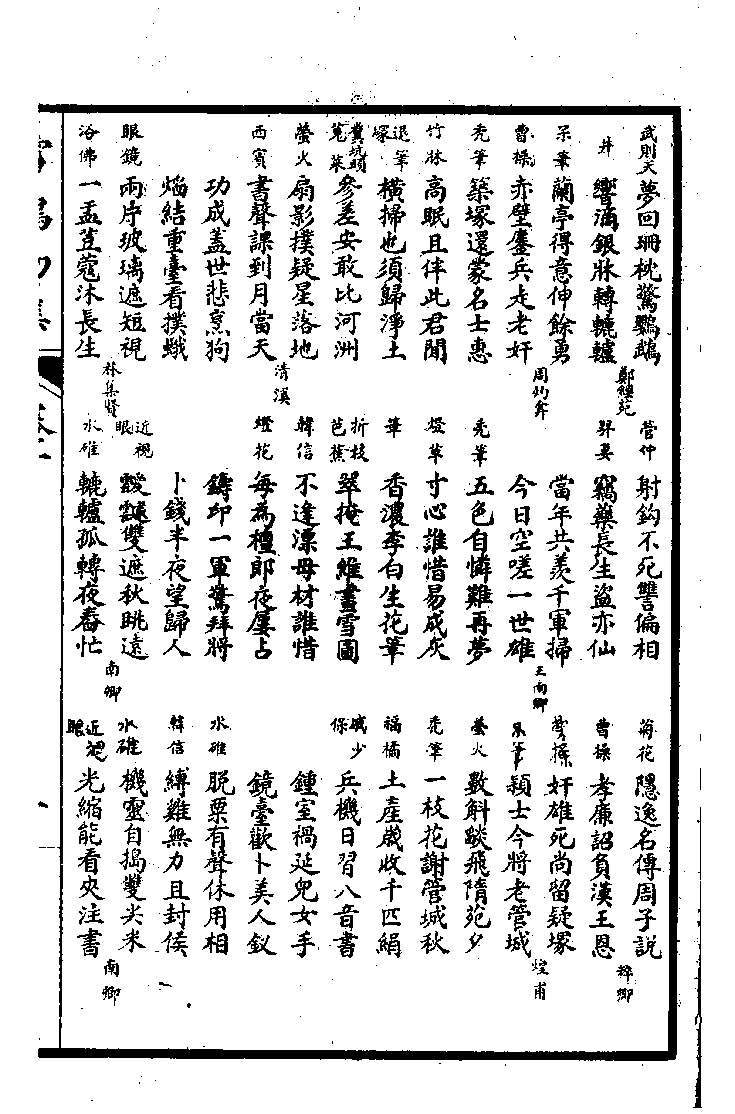 武則天 夢回珊枕驚鸚鵡
井 響滴銀牀轉轆轤 鄭纓苑
呆筆 蘭亭得意伸餘勇
曹操 赤壁鏖兵走老奸 周灼弇
禿筆 築塚還蒙名士惠
竹牀 高眠且伴此君閒
退筆塚 橫掃也須歸淨土
糞坑頭莧菜 參差安敢比河洲
螢火 扇影撲疑星落地
西賓 書聲課到月當天 清溪
功成蓋世悲烹狗
焰結重臺看撲蛾
眼鏡 兩片玻璃遮短視
浴佛 一盂荳蔻沐長生 林集賢
管仲 射鈎不死讐偏相
羿妻 竊藥長生盜亦仙
當年共羨千軍掃
今日空嗟一世雄 王南卿
禿筆 五色自憐難再夢
燈草 寸心誰惜易成灰
筆 香濃李白生花筆
折枝芭蕉 翠掩王維畫雪圖
韓信 不逢漂母材誰惜
燈花 每為檀郎夜屢占
鑄印一軍驚拜將
卜錢半夜望歸人
近視眼 靉靆雙遮秋眺遠
水碓 轆轤孤轉夜舂忙 南卿
菊花 隱逸名傳周子說
曹操 孝廉詔負漢王恩 稺卿
曹操 奸雄死尚留疑塚
呆筆 穎士今將老管城 煌甫
螢火 數斛燄飛隋苑夕
禿筆 一枝花謝管城秋
福橘 土產歲收千匹絹
戚少保 兵機日習八音書
鍾室禍延兒女手
鏡臺歡卜美人釵
水碓 脫粟有聲休用相
韓信 縛雞無力且封侯
水碓 機靈自搗雙尖米
近視眼 光縮能看夾注書 南卿